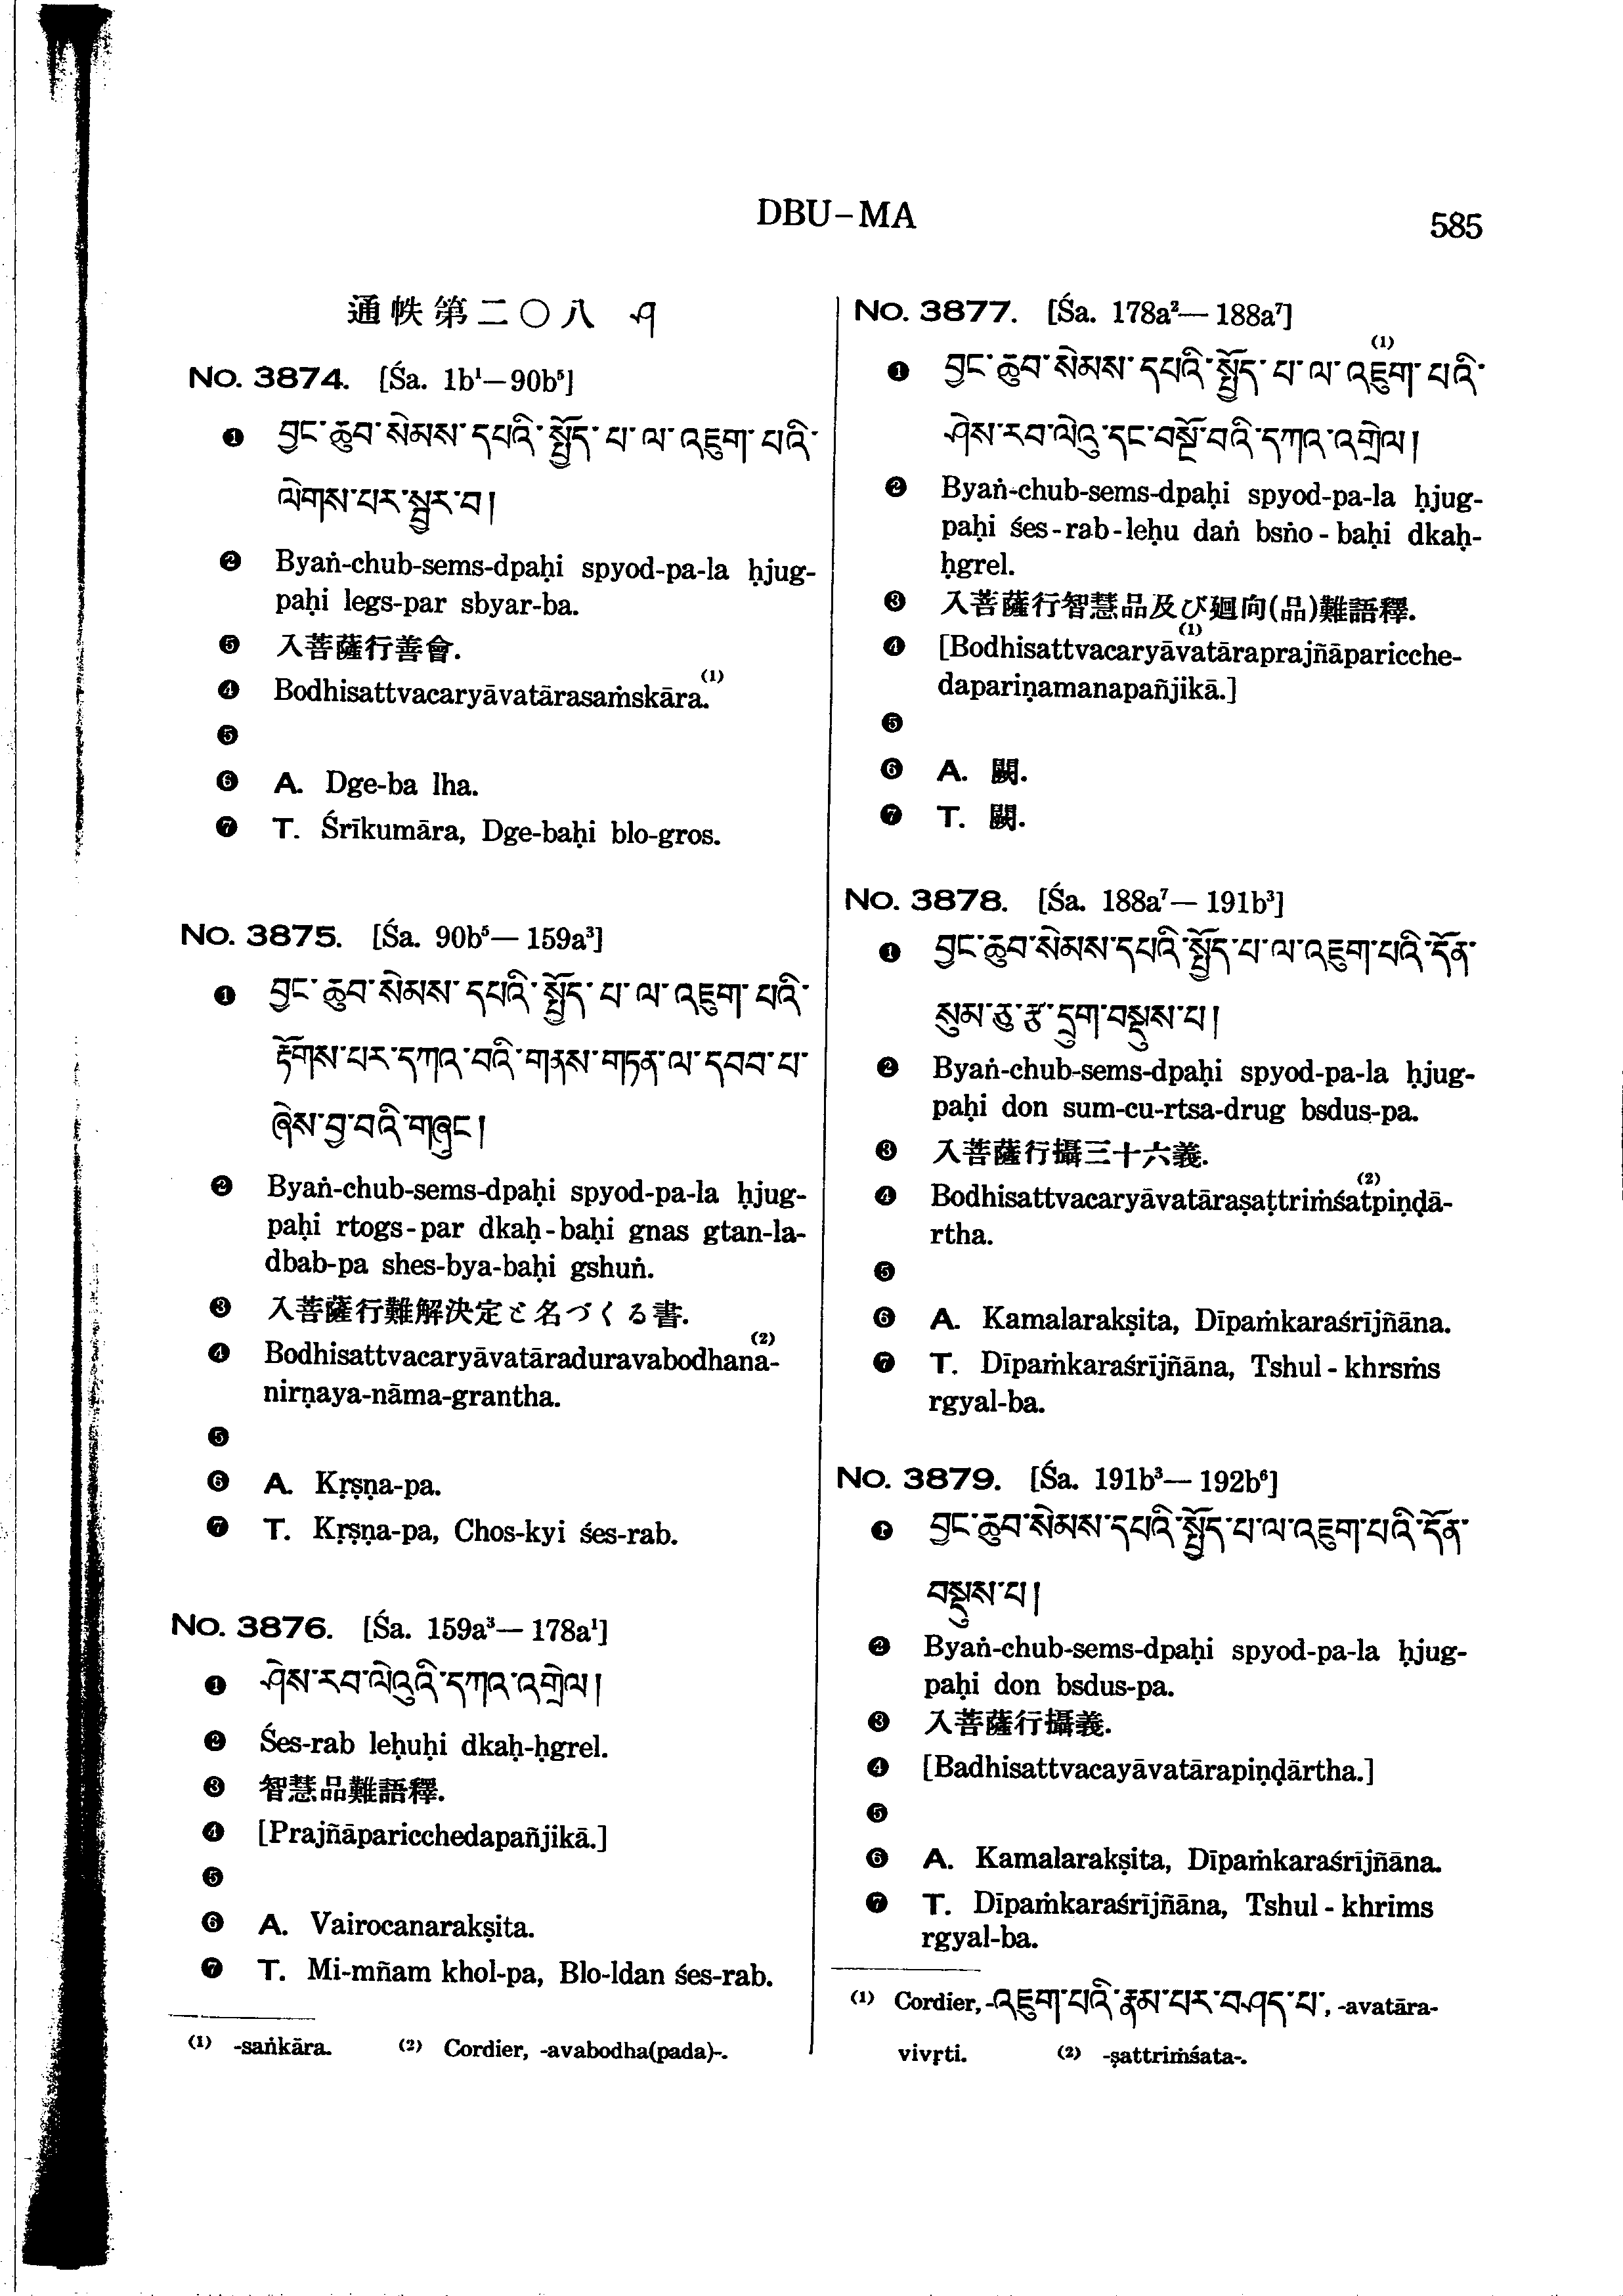 DBU-MA
585
通帙第二〇八 ཤ
No. 3874. [Śa. 1b¹—90b⁵]
❶ བྱང་ཆུབ་སེམས་དཔའི་སྤྱོད་པ་ལ་འཇུག་པའི་
ལེགས་པར་སྦྱར་བ།
❷ Byaṅ-chub-sems-dpaḥi spyod-pa-la ḥjug-
paḥi legs-par sbyar-ba.
❺ 入菩薩行善會.
❹ Bodhisattvacaryāvatārasaṁskāra.⁽¹⁾
❺
❻ A. Dge-ba lha.
❼ T. Śrīkumāra, Dge-baḥi blo-gros.
No. 3875. [Śa. 90b⁵—159a³]
❶ བྱང་ཆུབ་སེམས་དཔའི་སྤྱོད་པ་ལ་འཇུག་པའི་
རྟོགས་པར་དཀའ་བའི་གནས་གཏན་ལ་དབབ་པ་
ཞེས་བྱ་བའི་གཞུང།
❷ Byaṅ-chub-sems-dpaḥi spyod-pa-la ḥjug-
paḥi rtogs-par dkaḥ-baḥi gnas gtan-la-
dbab-pa shes-bya-baḥi gshuṅ.
❸ 入菩薩行難解決定と名づくる書.
❹ Bodhisattvacaryāvatāraduravabodhana-⁽²⁾
nirṇaya-nāma-grantha.
❺
❻ A. Kṛṣṇa-pa.
❼ T. Kṛṣṇa-pa, Chos-kyi śes-rab.
No. 3876. [Śa. 159a³—178a¹]
❶ ཤེས་རབ་ལེའུའི་དཀའ་འགྲེལ།
❷ Śes-rab leḥuḥi dkaḥ-ḥgrel.
❸ 智慧品難語釋.
❹ [Prajñāparicchedapañjikā.]
❺
❻ A. Vairocanarakṣita.
❼ T. Mi-mñam khol-pa, Blo-ldan śes-rab.
(1) -saṅkāra. (2) Cordier, -avabodha(pada)-.
No. 3877. [Śa. 178a²—188a⁷]
❶ བྱང་ཆུབ་སེམས་དཔའི་སྤྱོད་པ་ལ་འཇུག་⁽¹⁾པའི་
ཤེས་རབ་ལེའུ་དང་བསྔོ་བའི་དཀའ་འགྲེལ།
❷ Byaṅ-chub-sems-dpaḥi spyod-pa-la ḥjug-
paḥi śes-rab-leḥu daṅ bsṅo-baḥi dkaḥ-
ḥgrel.
❸ 入菩薩行智慧品及び廻向(品)難語釋.
❹ [Bodhisattvacaryāva⁽¹⁾tāraprajñāparicche-
dapariṇamanapañjikā.]
❺
❻ A. 闕.
❼ T. 闕.
No. 3878. [Śa. 188a⁷—191b³]
❶ བྱང་ཆུབ་སེམས་དཔའི་སྤྱོད་པ་ལ་འཇུག་པའི་དོན་
སུམ་ཅུ་རྩ་དྲུག་བསྡུས་པ།
❷ Byaṅ-chub-sems-dpaḥi spyod-pa-la ḥjug-
paḥi don sum-cu-rtsa-drug bsdus-pa.
❸ 入菩薩行攝三十六義.
❹ Bodhisattvacaryāvatāraṣaṭtriṁśat⁽²⁾piṇḍā-
rtha.
❺
❻ A. Kamalarakṣita, Dīpaṁkaraśrījñāna.
❼ T. Dīpaṁkaraśrījñāna, Tshul-khrsṁs
rgyal-ba.
No. 3879. [Śa. 191b³—192b⁶]
❶ བྱང་ཆུབ་སེམས་དཔའི་སྤྱོད་པ་ལ་འཇུག་པའི་དོན་
བསྡུས་པ།
❷ Byaṅ-chub-sems-dpaḥi spyod-pa-la ḥjug-
paḥi don bsdus-pa.
❸ 入菩薩行攝義.
❹ [Badhisattvacayāvatārapiṇḍārtha.]
❺
❻ A. Kamalarakṣita, Dīpaṁkaraśrījñāna.
❼ T. Dīpaṁkaraśrījñāna, Tshul-khrims
rgyal-ba.
(1) Cordier, -འཇུག་པའི་རྣམ་པར་བཤད་པ་, -avatāra-
vivṛti. (2) -ṣattriṁśata-.